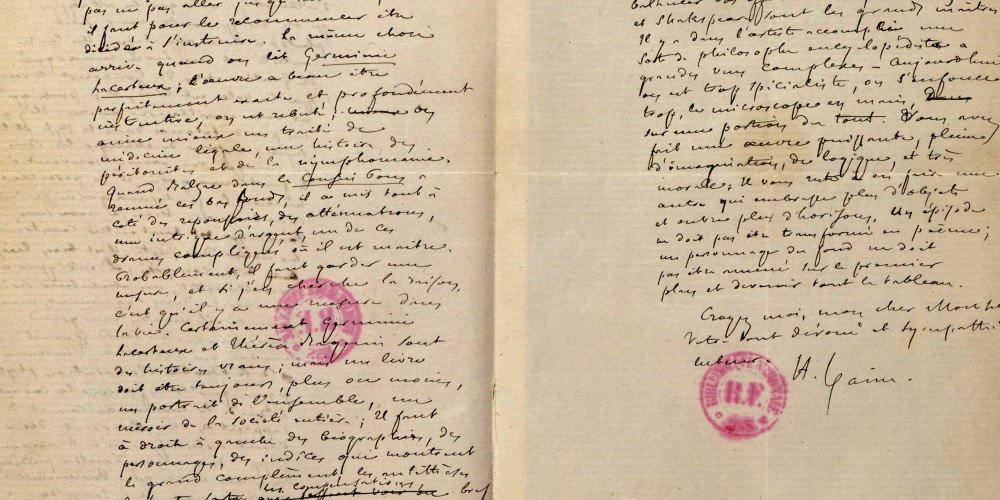 pas un pas aller jusqu'
il faut pour le recommencer être
décidé à s'instruire. La même chose
arrive quand on lit Germinie
Lacerteux ; l'œuvre a beau être
parfaitement exacte et profondément
instructive, on est rebuté ; on
aime mieux un traité de
médecine légale, une histoire des
péritonites et de la nymphomanie.
Quand Balzac dans la Cousine Bette a
remué ces bas fonds, il a mis tout à
côté des repoussoirs, des atténuations,
une intrigue d'argent, un de ces
drames compliqués où il est maître.
Probablement, il faut garder une
mesure, et si j'en cherche la raison,
c'est qu'il y a une mesure dans
la vie. Certainement Germinie
Lacerteux et Thérèse Raquin sont
des histoires vraies ; mais un livre
doit être toujours, plus ou moins,
un portrait de l'ensemble, un
miroir de la société entière ; il faut
à droite à gauche des biographies, des
personnages, des indices qui montrent
le grand complément, les antithèses
les compensations
bref
et Shakspeare sont les grands maîtres
Il y a dans l'artiste accompli une
sorte de philosophe encyclopédiste à
grandes vues complexes — aujourd'hui
on est trop spécialiste, on s'enfonce
trop, le microscope en main,
sur une portion du tout. Vous avez
fait une œuvre puissante, pleine
d'imagination, de logique, et très
morale ; il vous reste à en faire une
autre qui embrasse plus d'objets
et ouvre plus d'horizons. Un épisode
ne doit pas être transformé en poème ;
un personnage du fond ne doit
pas être amené sur le premier
plan et devenir tout le tableau.
Croyez moi, mon cher Monsieur
Votre tout dévoué et sympathique
lecteur. H. Taine.
BIBLIOTHÈQUE NATIONALE
R.F.
MSS